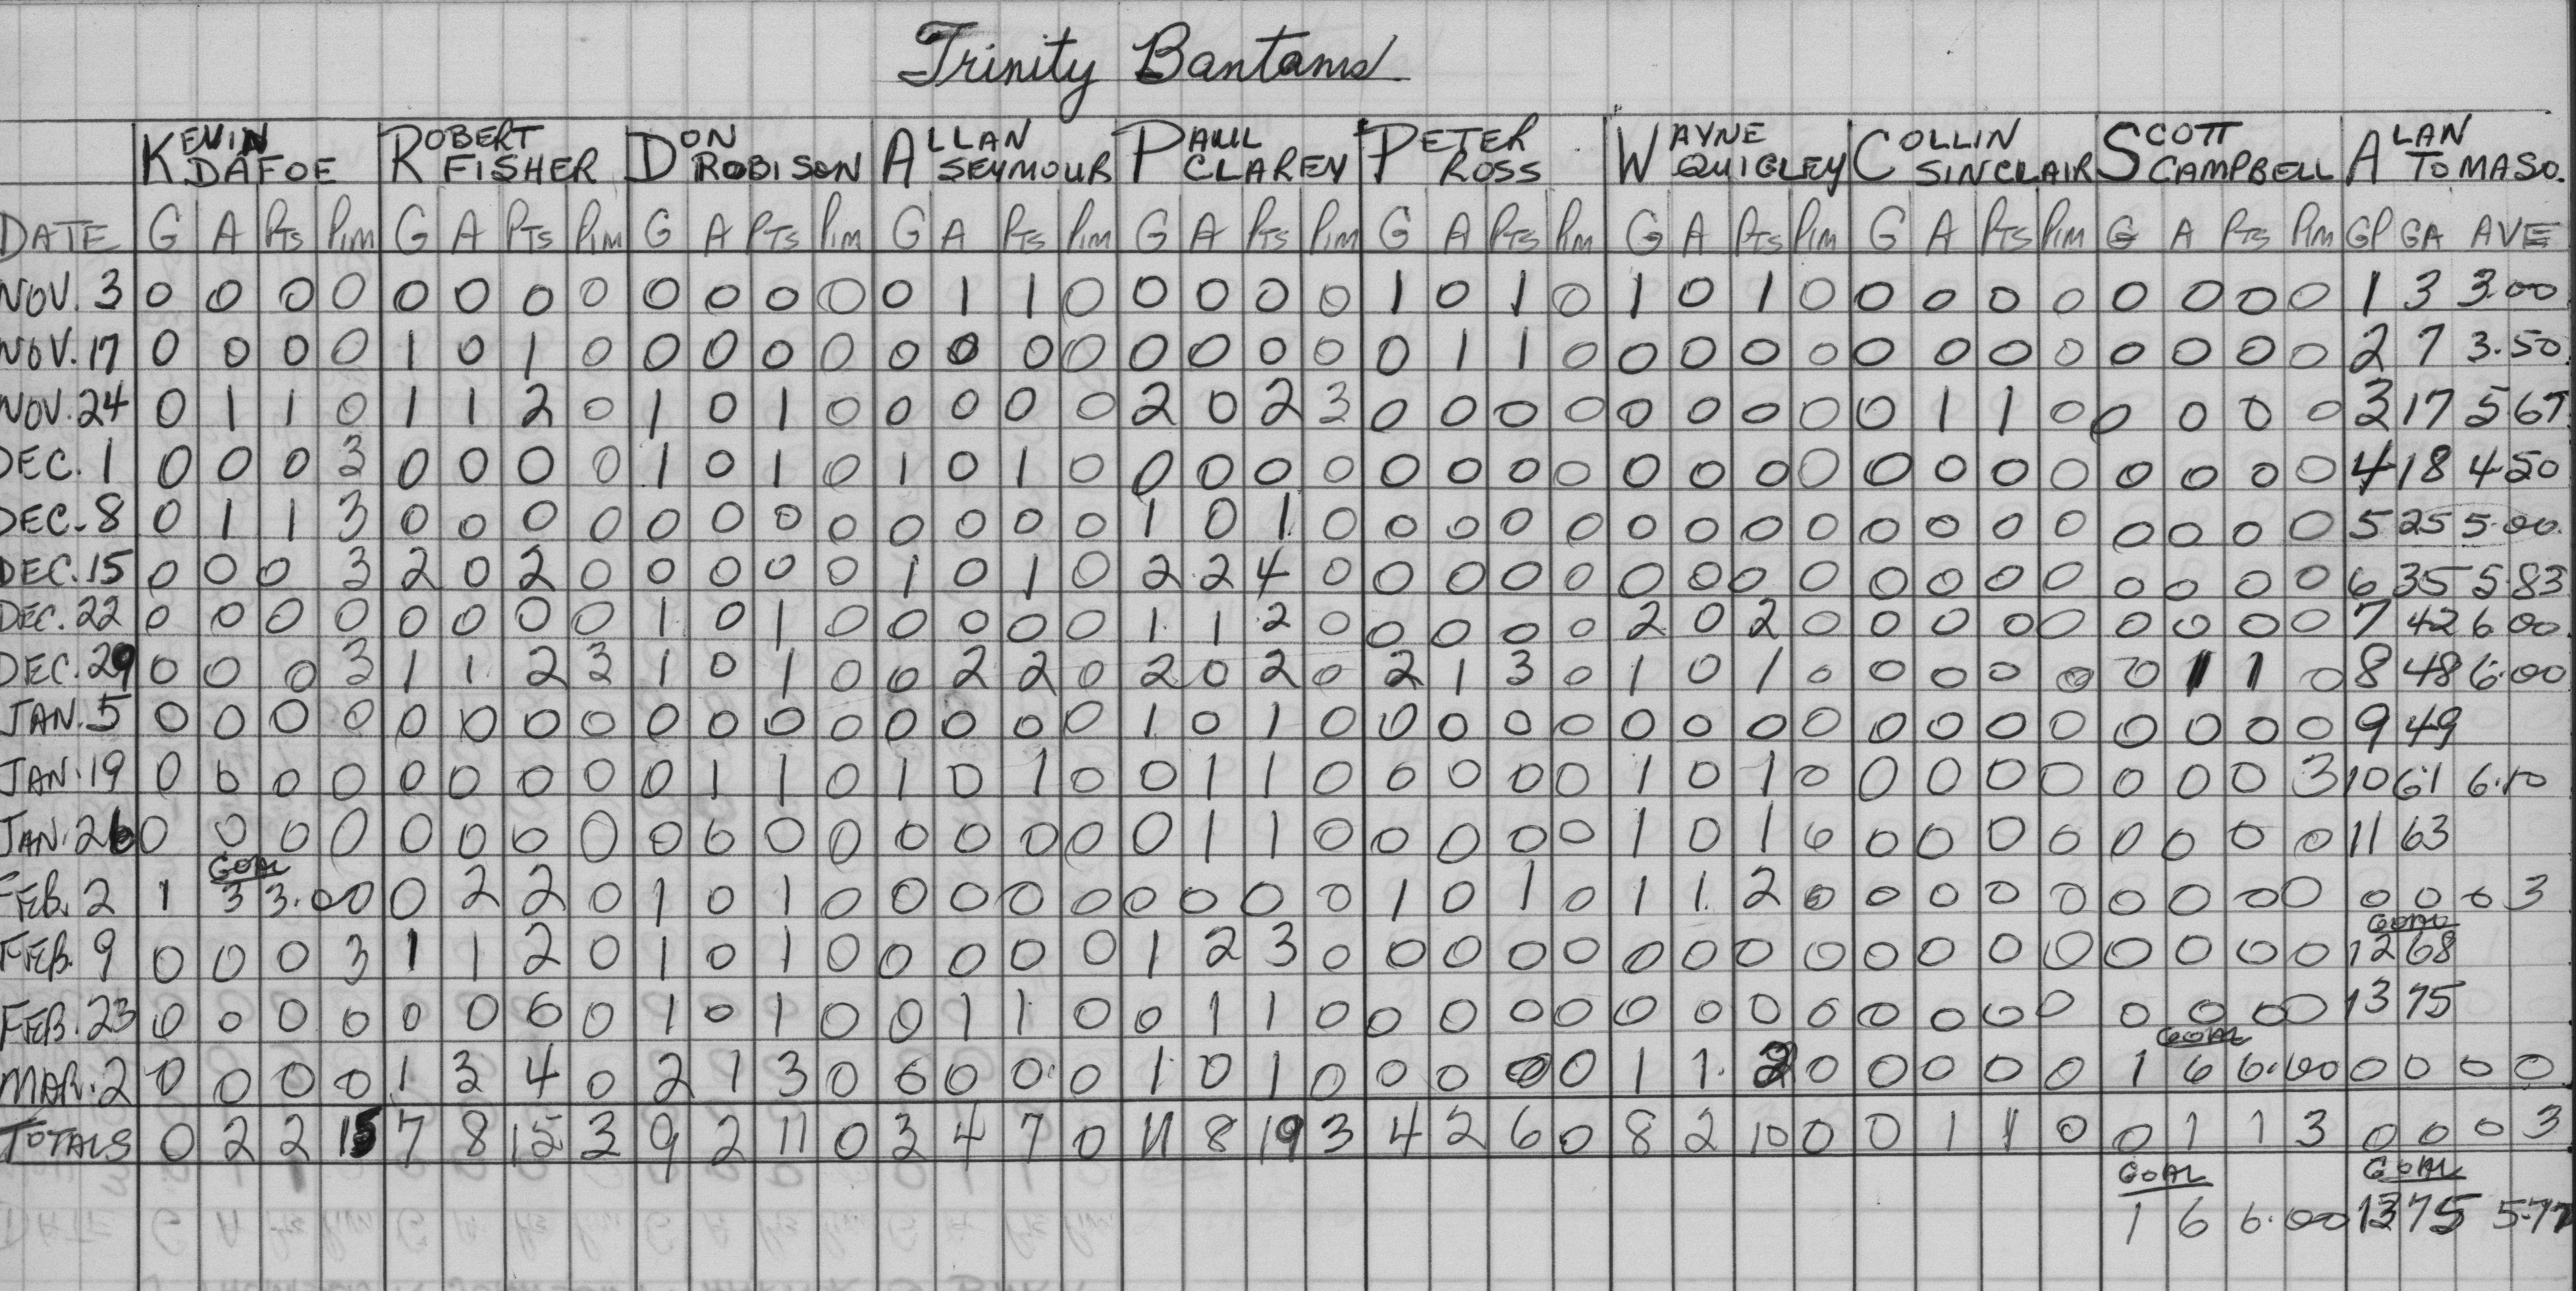 Trinity Bantams
KEVIN DAFOE ROBERT FISHER DON ROBISON ALLAN SEYMOUR PAUL CLAREY PETER ROSS WAYNE QUIGLEY COLLIN SINCLAIR SCOTT CAMPBELL ALAN TOMASO.
DATE G A Pts Pim G A Pts Pim G A Pts Pim G A Pts Pim G A Pts Pim G A Pts Pim G A Pts Pim G A Pts Pim G A Pts Pim GP GA AVE
NOV. 3 0 0 0 0 0 0 0 0 0 0 0 0 0 1 1 0 0 0 0 0 1 0 1 0 1 0 1 0 0 0 0 0 0 0 0 0 1 3 3.00
NOV. 17 0 0 0 0 1 0 1 0 0 0 0 0 0 0 0 0 0 0 0 0 0 1 1 0 0 0 0 0 0 0 0 0 0 0 0 0 2 7 3.50
NOV. 24 0 1 1 0 1 1 2 0 1 0 1 0 0 0 0 0 2 0 2 3 0 0 0 0 0 0 0 0 0 1 1 0 0 0 0 0 3 17 5 67
DEC. 1 0 0 0 3 0 0 0 0 1 0 1 0 1 0 1 0 0 0 0 0 0 0 0 0 0 0 0 0 0 0 0 0 0 0 0 0 4 18 4 50
DEC. 8 0 1 1 3 0 0 0 0 0 0 0 0 0 0 0 0 1 0 1 0 0 0 0 0 0 0 0 0 0 0 0 0 0 0 0 0 5 25 5.00
DEC. 15 0 0 0 3 2 0 2 0 0 0 0 0 1 0 1 0 2 2 4 0 0 0 0 0 0 0 0 0 0 0 0 0 0 0 0 0 6 35 5.83
DEC. 22 0 0 0 0 0 0 0 0 1 0 1 0 0 0 0 0 1 1 2 0 0 0 0 0 2 0 2 0 0 0 0 0 0 0 0 0 7 42 6.00
DEC. 29 0 0 0 3 1 1 2 3 1 0 1 0 0 2 2 0 2 0 2 0 2 1 3 0 1 0 1 0 0 0 0 0 0 1 1 0 8 48 6.00
JAN. 5 0 0 0 0 0 0 0 0 0 0 0 0 0 0 0 0 1 0 1 0 0 0 0 0 0 0 0 0 0 0 0 0 0 0 0 0 9 49
JAN. 19 0 0 0 0 0 0 0 0 0 1 1 0 1 0 1 0 0 1 1 0 0 0 0 0 1 0 1 0 0 0 0 0 0 0 0 3 10 61 6.10
JAN. 26 0 0 0 0 0 0 0 0 0 0 0 0 0 0 0 0 0 1 1 0 0 0 0 0 1 0 1 0 0 0 0 0 0 0 0 0 11 63
GOAL
FEB. 2 1 3 3.00 0 2 2 0 1 0 1 0 0 0 0 0 0 0 0 0 1 0 1 0 1 1 2 0 0 0 0 0 0 0 0 0 0 0 0 3
GOAL
FEB. 9 0 0 0 3 1 1 2 0 1 0 1 0 0 0 0 0 1 2 3 0 0 0 0 0 0 0 0 0 0 0 0 0 0 0 0 0 12 68
FEB. 23 0 0 0 0 0 0 0 0 1 0 1 0 0 1 1 0 0 1 1 0 0 0 0 0 0 0 0 0 0 0 0 0 0 0 0 0 13 75
GOAL
MAR. 2 0 0 0 0 1 3 4 0 2 1 3 0 0 0 0 0 1 0 1 0 0 0 0 0 1 1 2 0 0 0 0 0 1 6 6.00 0 0 0 0
TOTALS 0 2 2 15 7 8 15 3 9 2 11 0 3 4 7 0 11 8 19 3 4 2 6 0 8 2 10 0 0 1 1 0 0 1 1 3 0 0 0 3
GOAL GOAL
1 6 6.00 13 75 5.77